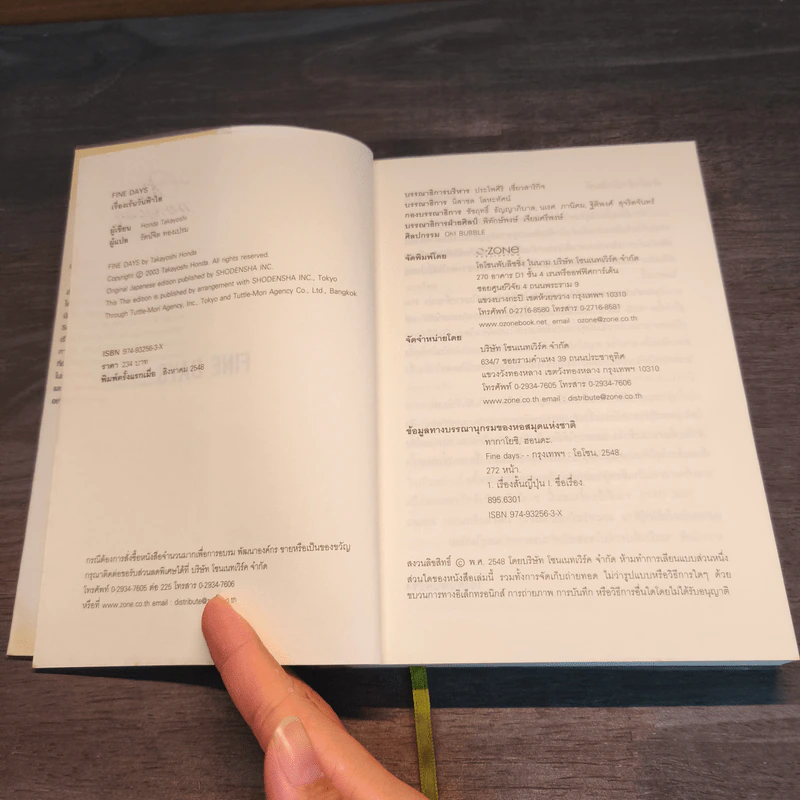 FINE DAYS
เรื่องรักวันฟ้าใส
ผู้เขียน Honda Takayoshi
ผู้แปล รัตน์จิต ทองเปรม
FINE DAYS by Takayoshi Honda
Copyright © 2003 Takayoshi Honda. All rights reserved.
Original Japanese edition published by SHODENSHA INC.
This Thai edition is published by arrangement with SHODENSHA INC., Tokyo
Through Tuttle-Mori Agency, Inc., Tokyo and Tuttle-Mori Agency Co., Ltd., Bangkok
ISBN 974-93256-3-X
ราคา 234 บาท
พิมพ์ครั้งแรกเมื่อ สิงหาคม 2548
กรณีต้องการสั่งซื้อหนังสือจำนวนมากเพื่อการอบรม พัฒนาองค์กร ขายหรือเป็นของขวัญ
กรุณาติดต่อขอรับส่วนลดพิเศษได้ที่ บริษัท โซนเนทเวิร์ค จำกัด
โทรศัพท์ 0-2934-7605 ต่อ 225 โทรสาร 0-2934-7606
หรือที่ www.zone.co.th email : distribute@zone.co.th
บรรณาธิการบริหาร ประไพศิริ เชี่ยวสาริกิจ
บรรณาธิการ นิดาชล โลหะทัศน์
กองบรรณาธิการ ชัชฤทธิ์ ธัญญาภิบาล นเรศ ภานิคะ ฐิติพงศ์ สุจริตจันทร์
บรรณาธิการฝ่ายศิลป์ พิทักษ์พงษ์ เจียมศรีพงษ์
ศิลปกรรม OH BUBBLE
จัดพิมพ์โดย
OZONE
โอโซนพับลิชชิ่ง ในนาม บริษัท โซนเนทเวิร์ค จำกัด
270 อาคาร D1 ชั้น 4 เนทรีออฟพิศการ์เด้น
ซอยศูนย์วิจัย 4 ถนนพระราม 9
แขวงบางกะปิ เขตห้วยขวาง กรุงเทพฯ 10310
โทรศัพท์ 0-2716-8580 โทรสาร 0-2716-8581
www.ozonebook.net email : ozone@zone.co.th
จัดจำหน่ายโดย
บริษัท โซนเนทเวิร์ค จำกัด
634/7 ซอยรามคำแหง 39 ถนนประชาอุทิศ
แขวงวังทองหลาง เขตวังทองหลาง กรุงเทพฯ 10310
โทรศัพท์ 0-2934-7605 โทรสาร 0-2934-7606
www.zone.co.th email : distribute@zone.co.th
ข้อมูลทางบรรณานุกรมของหอสมุดแห่งชาติ
ทากาโยชิ, ฮอนดะ.
Fine days.-- กรุงเทพฯ : โอโซน, 2548.
272 หน้า.
1. เรื่องสั้นญี่ปุ่น I. ชื่อเรื่อง.
895.6301
ISBN 974-93256-3-X
สงวนลิขสิทธิ์ © พ.ศ. 2548 โดยบริษัท โซนเนทเวิร์ค จำกัด ห้ามทำการเลียนแบบส่วนหนึ่ง
ส่วนใดของหนังสือเล่มนี้ รวมทั้งการจัดเก็บถ่ายทอด ไม่ว่ารูปแบบหรือวิธีการใดๆ ด้วย
ขบวนการทางอิเล็กทรอนิกส์ การถ่ายภาพ การบันทึก หรือวิธีการอื่นใดโดยไม่ได้รับอนุญาติ